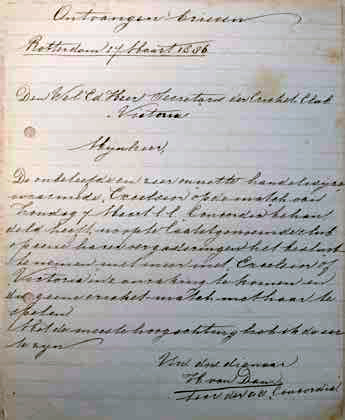 Ontvangen brieven
Rotterdam 17 Maart 1886
Den Wel Ed Heer Secretaris der Cricket Club
Victoria
Mijnheer,
De onbeleefde en zeer onnette handelwijze
waarmede Excelsior op de match van
Zondag 7 Maart l.l. Concordia behan
deld heeft, noopte laatstgenoemde club
op eene harer vergaderingen het besluit
te nemen niet meer met Excelsior of
Victoria in aanraking te komen en
dus geene cricket match met haar te
spelen
Met de meeste hoogachting heb ik de eer
te zijn
Uw dw dienaar
H van Dam
Secr der CC Concordia